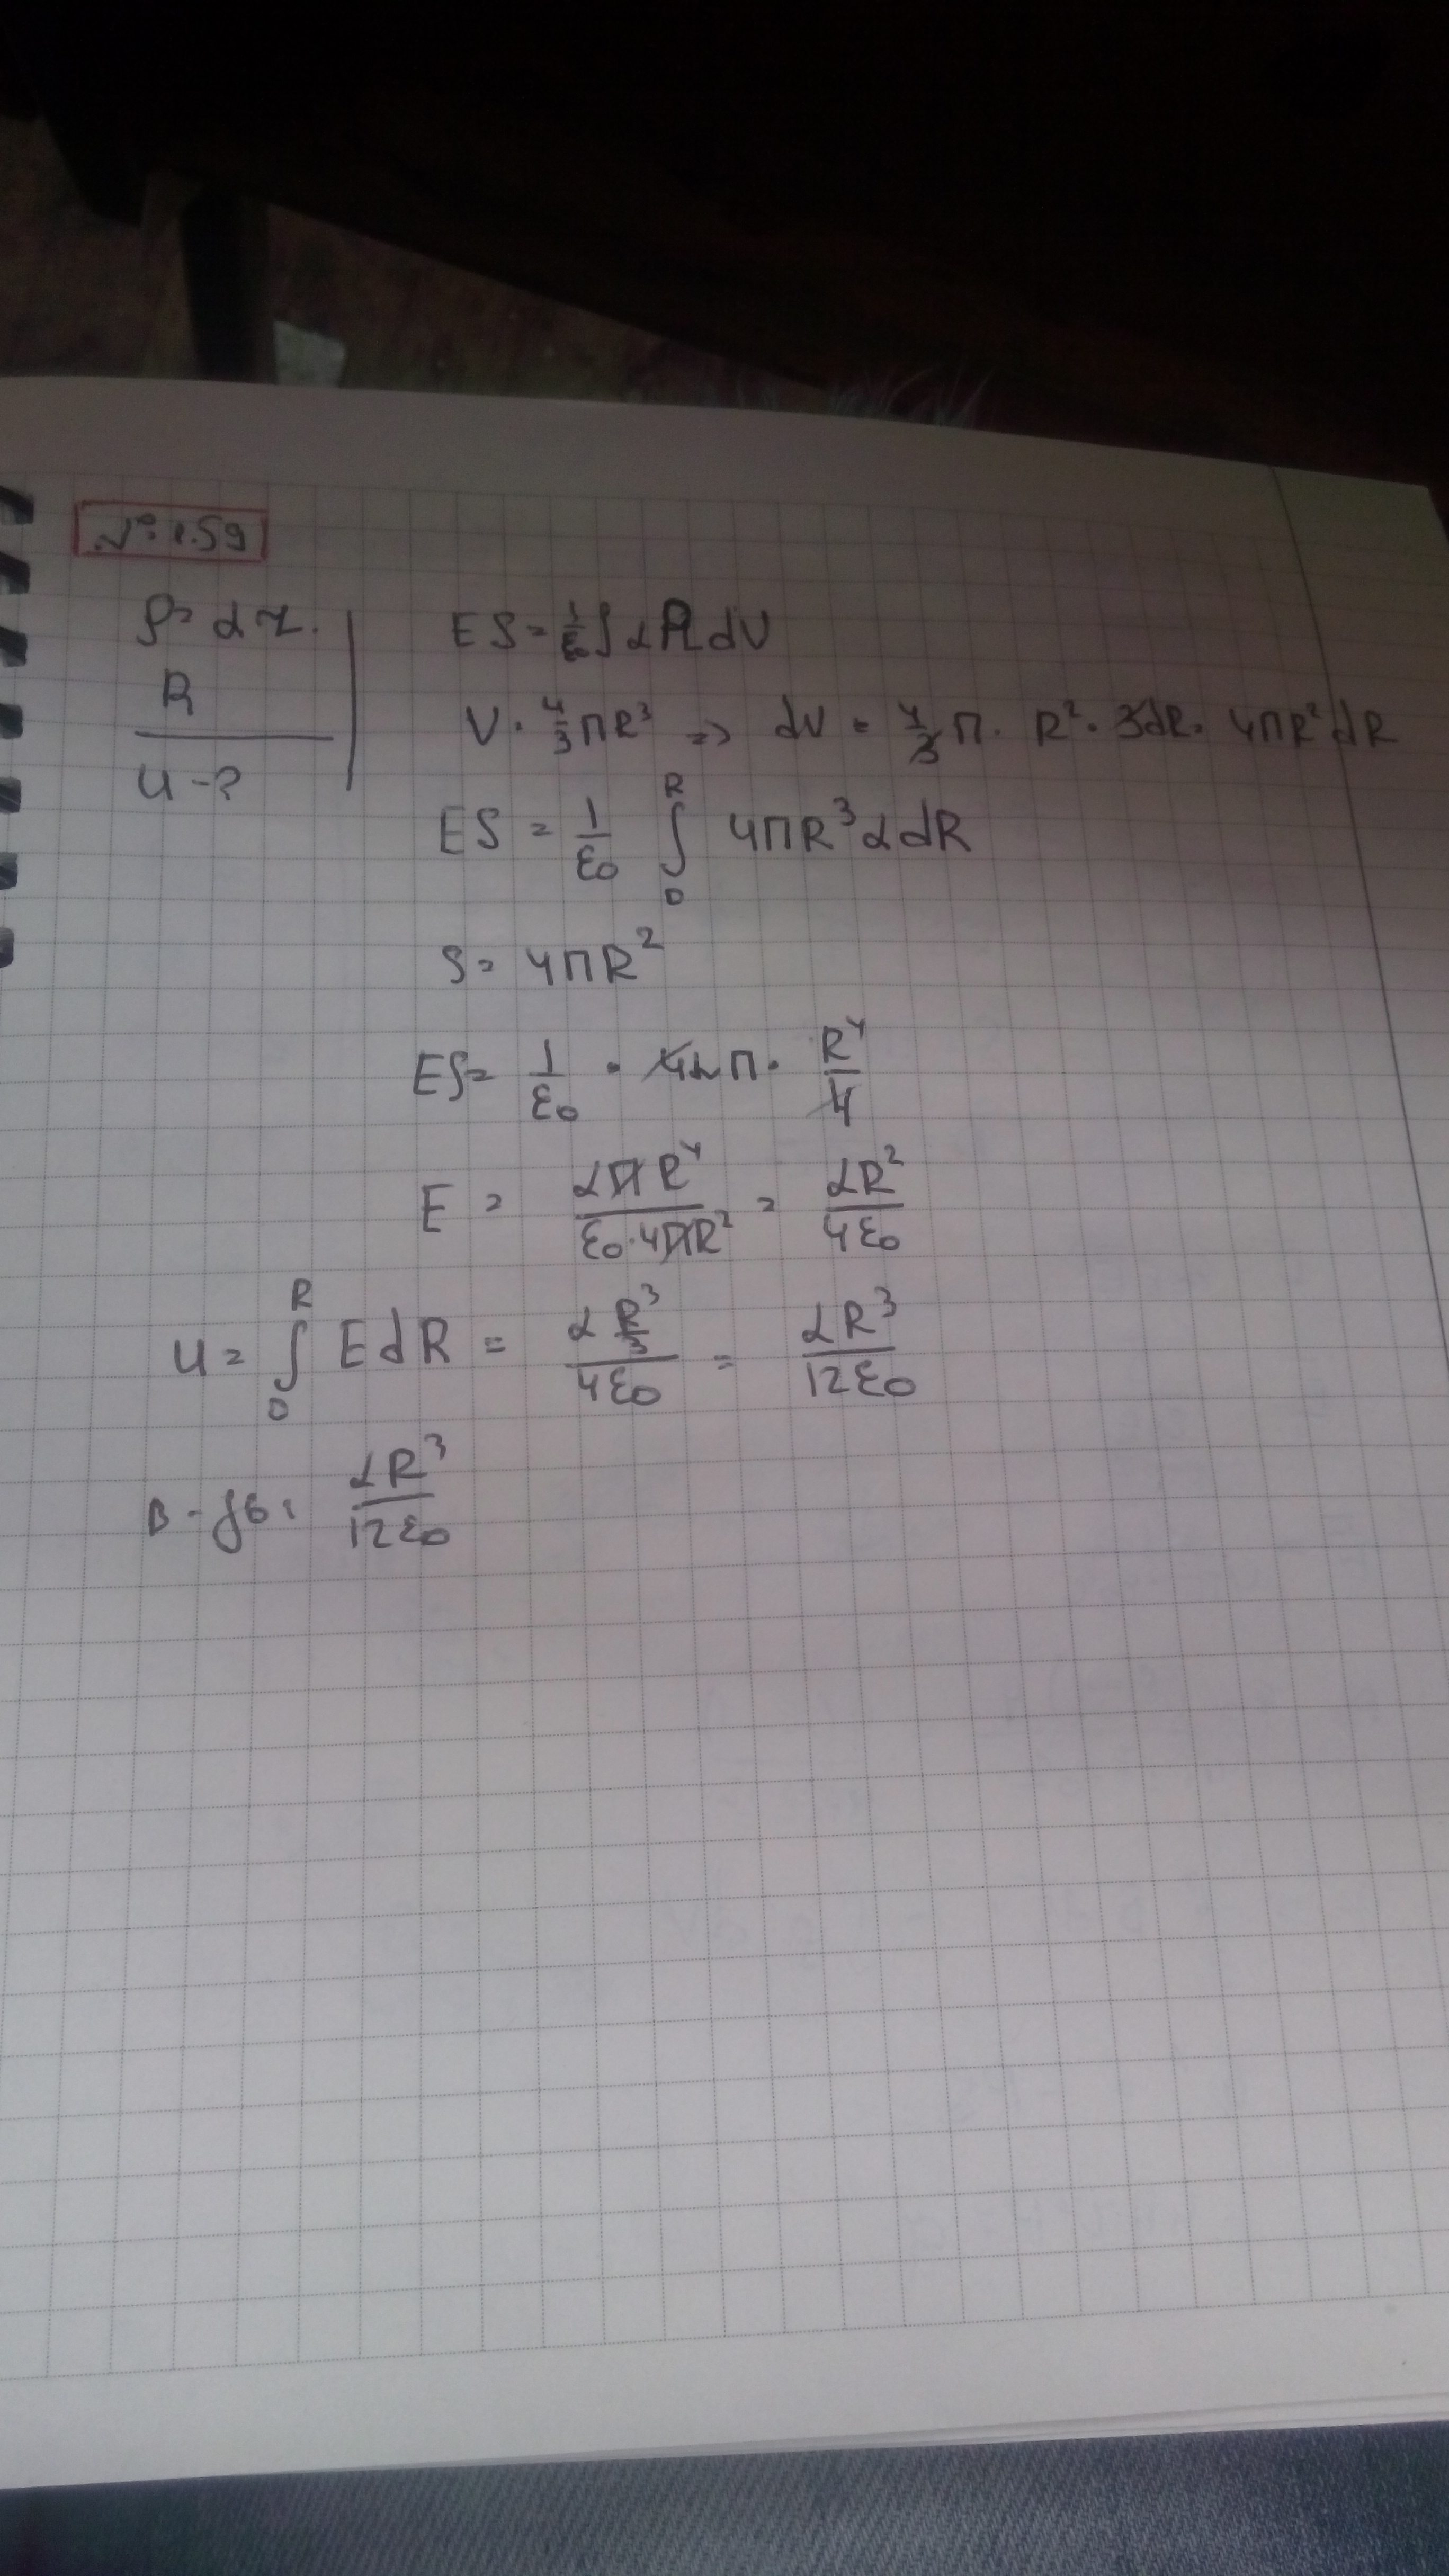 № 1.59
ρ = αr.
R
U - ?
ES = 1/ε0 ∫ αR dV
V = 4/3 πR³ => dV = 4/3 π · R² · 3dR = 4πR² dR
ES = 1/ε0 ∫₀ᴿ 4πR³ α dR
S = 4πR²
ES = 1/ε0 · 4απ · R⁴/4
E = απR⁴/(ε0 · 4πR²) = αR²/(4ε0)
U = ∫₀ᴿ E dR = (α R³/3)/(4ε0) = αR³/(12ε0)
В-дь: αR³/(12ε0)